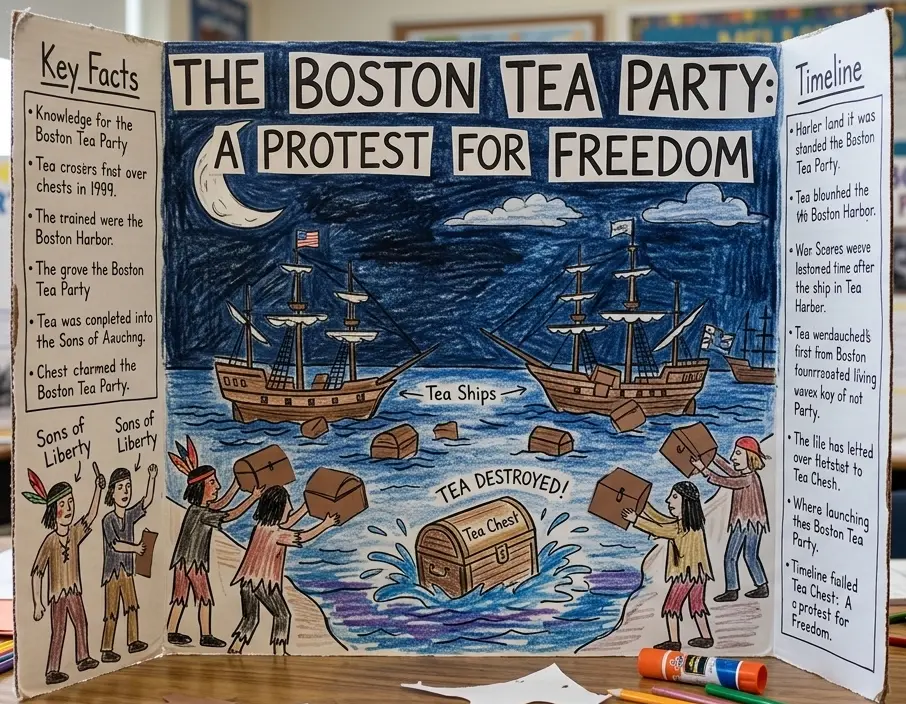 Key Facts
• Knowledge for the
Boston Tea Party
• Tea crosers fnst over
chests in 1999.
• The trained were the
Boston Harbor.
• The grove the Boston
Tea Party
• Tea was conpleted into
the Sons of Aauchng.
• Chest charmed the
Boston Tea Party.
Sons of
Liberty
Sons of
Liberty
THE BOSTON TEA PARTY:
A PROTEST FOR FREEDOM
← Tea Ships →
TEA DESTROYED!
Tea Chest
Timeline
• Harler land it was
standed the Boston
Tea Party.
• Tea blounhed the
Boston Harbor.
• War Scores weeve
lestoned time after
the ship in Tea
Harber.
• Tea werdauched's
first from Boston
living
wavex koy of not
Party.
• The lile has lefted
over to
Tea Chesh.
• Where launching
thes Boston Tea
Party.
• Timeline
Tea Chest: A
protest for
Freedom.